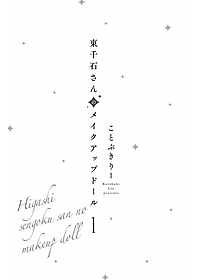 東千石さんのメイクアップドール
1
ことぶきりー
Kotobuki
lee
presents
Higashi
sengoku san no
makeup doll